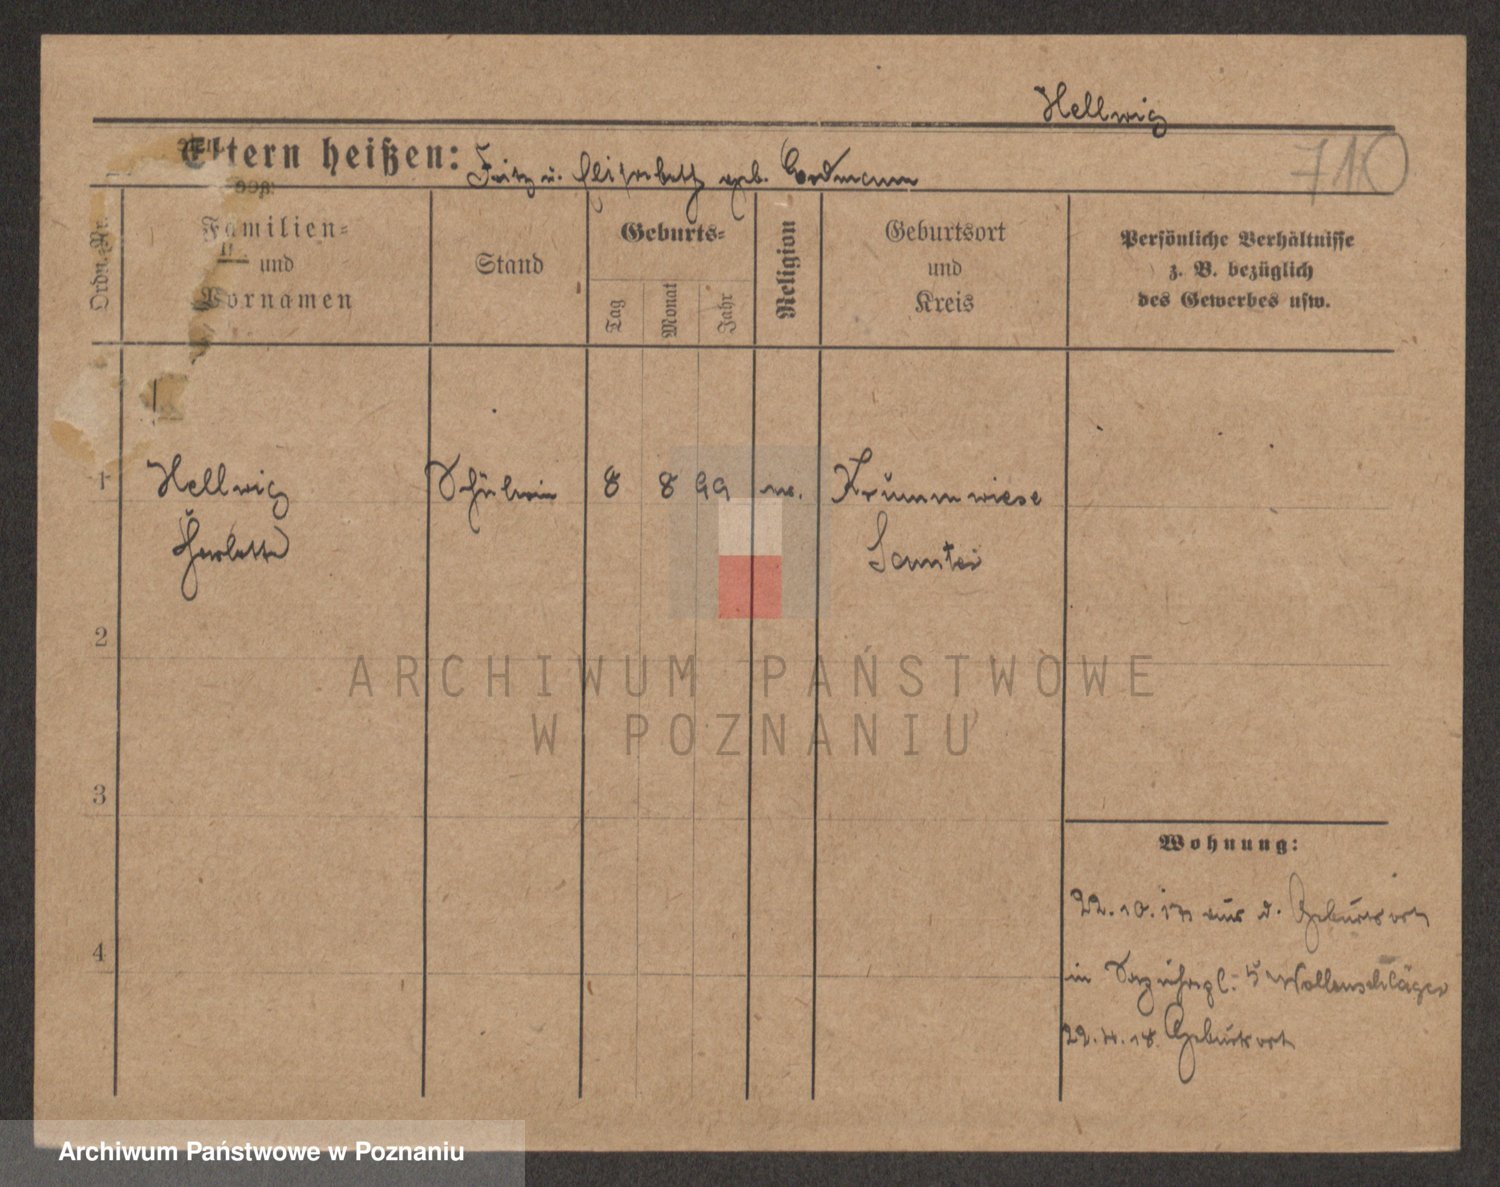 Hellwig
710
Eltern heißen: Fritz u. Elisabeth geb. Erdmann
Ordn. Nr.
Familien-
und
Vornamen
Stand
Geburts-
Tag
Monat
Jahr
Religion
Geburtsort
und
Kreis
Persönliche Verhältnisse
z. B. bezüglich
des Gewerbes usw.
1 Hellwig Schülerin 8 8 99 Krummwiese
Samter
2
3
4
Wohnung:
22.10.17 aus d. Geburtsort
in 5 Wollenschläger
22.4.18 Geburtsort
ARCHIWUM PAŃSTWOWE
W POZNANIU
Archiwum Państwowe w Poznaniu